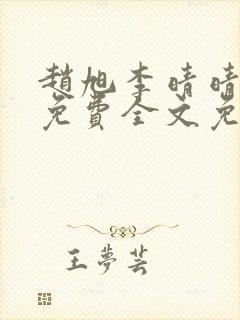 趙旭李晴晴
免費全文免
王夢芸